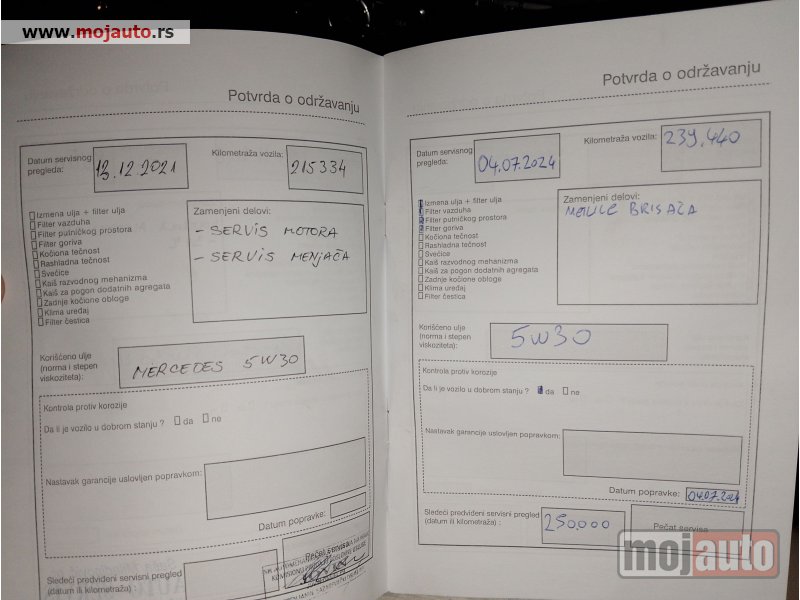 www.mojauto.rs
Potvrda o održavanju
Datum servisnog
pregleda:
13.12.2021
Kilometraža vozila:
215334
Izmena ulja + filter ulja
Filter vazduha
Filter putničkog prostora
Filter goriva
Kočiona tečnost
Rashladna tečnost
Svećice
Kaiš razvodnog mehanizma
Kaiš za pogon dodatnih agregata
Zadnje kočione obloge
Klima uređaj
Filter čestica
Zamenjeni delovi:
- SERVIS MOTORA
- SERVIS MENJAČA
Korišćeno ulje
(norma i stepen
viskoziteta):
MERCEDES 5W30
Kontrola protiv korozije
Da li je vozilo u dobrom stanju ? da ne
Nastavak garancije uslovljen popravkom:
Datum popravke:
Sledeći predviđeni servisni pregled
(datum ili kilometraža) :
Pečat servisa
Potvrda o održavanju
Datum servisnog
pregleda:
04.07.2024
Kilometraža vozila:
239.440
Izmena ulja + filter ulja
Filter vazduha
Filter putničkog prostora
Filter goriva
Kočiona tečnost
Rashladna tečnost
Svećice
Kaiš razvodnog mehanizma
Kaiš za pogon dodatnih agregata
Zadnje kočione obloge
Klima uređaj
Filter čestica
Zamenjeni delovi:
BRISAČA
5W30
Kontrola protiv korozije
Da li je vozilo u dobrom stanju ? da ne
Nastavak garancije uslovljen popravkom:
Datum popravke: 04.07.2024
Sledeći predviđeni servisni pregled
(datum ili kilometraža) :
250.000
Pečat servisa
mojauto